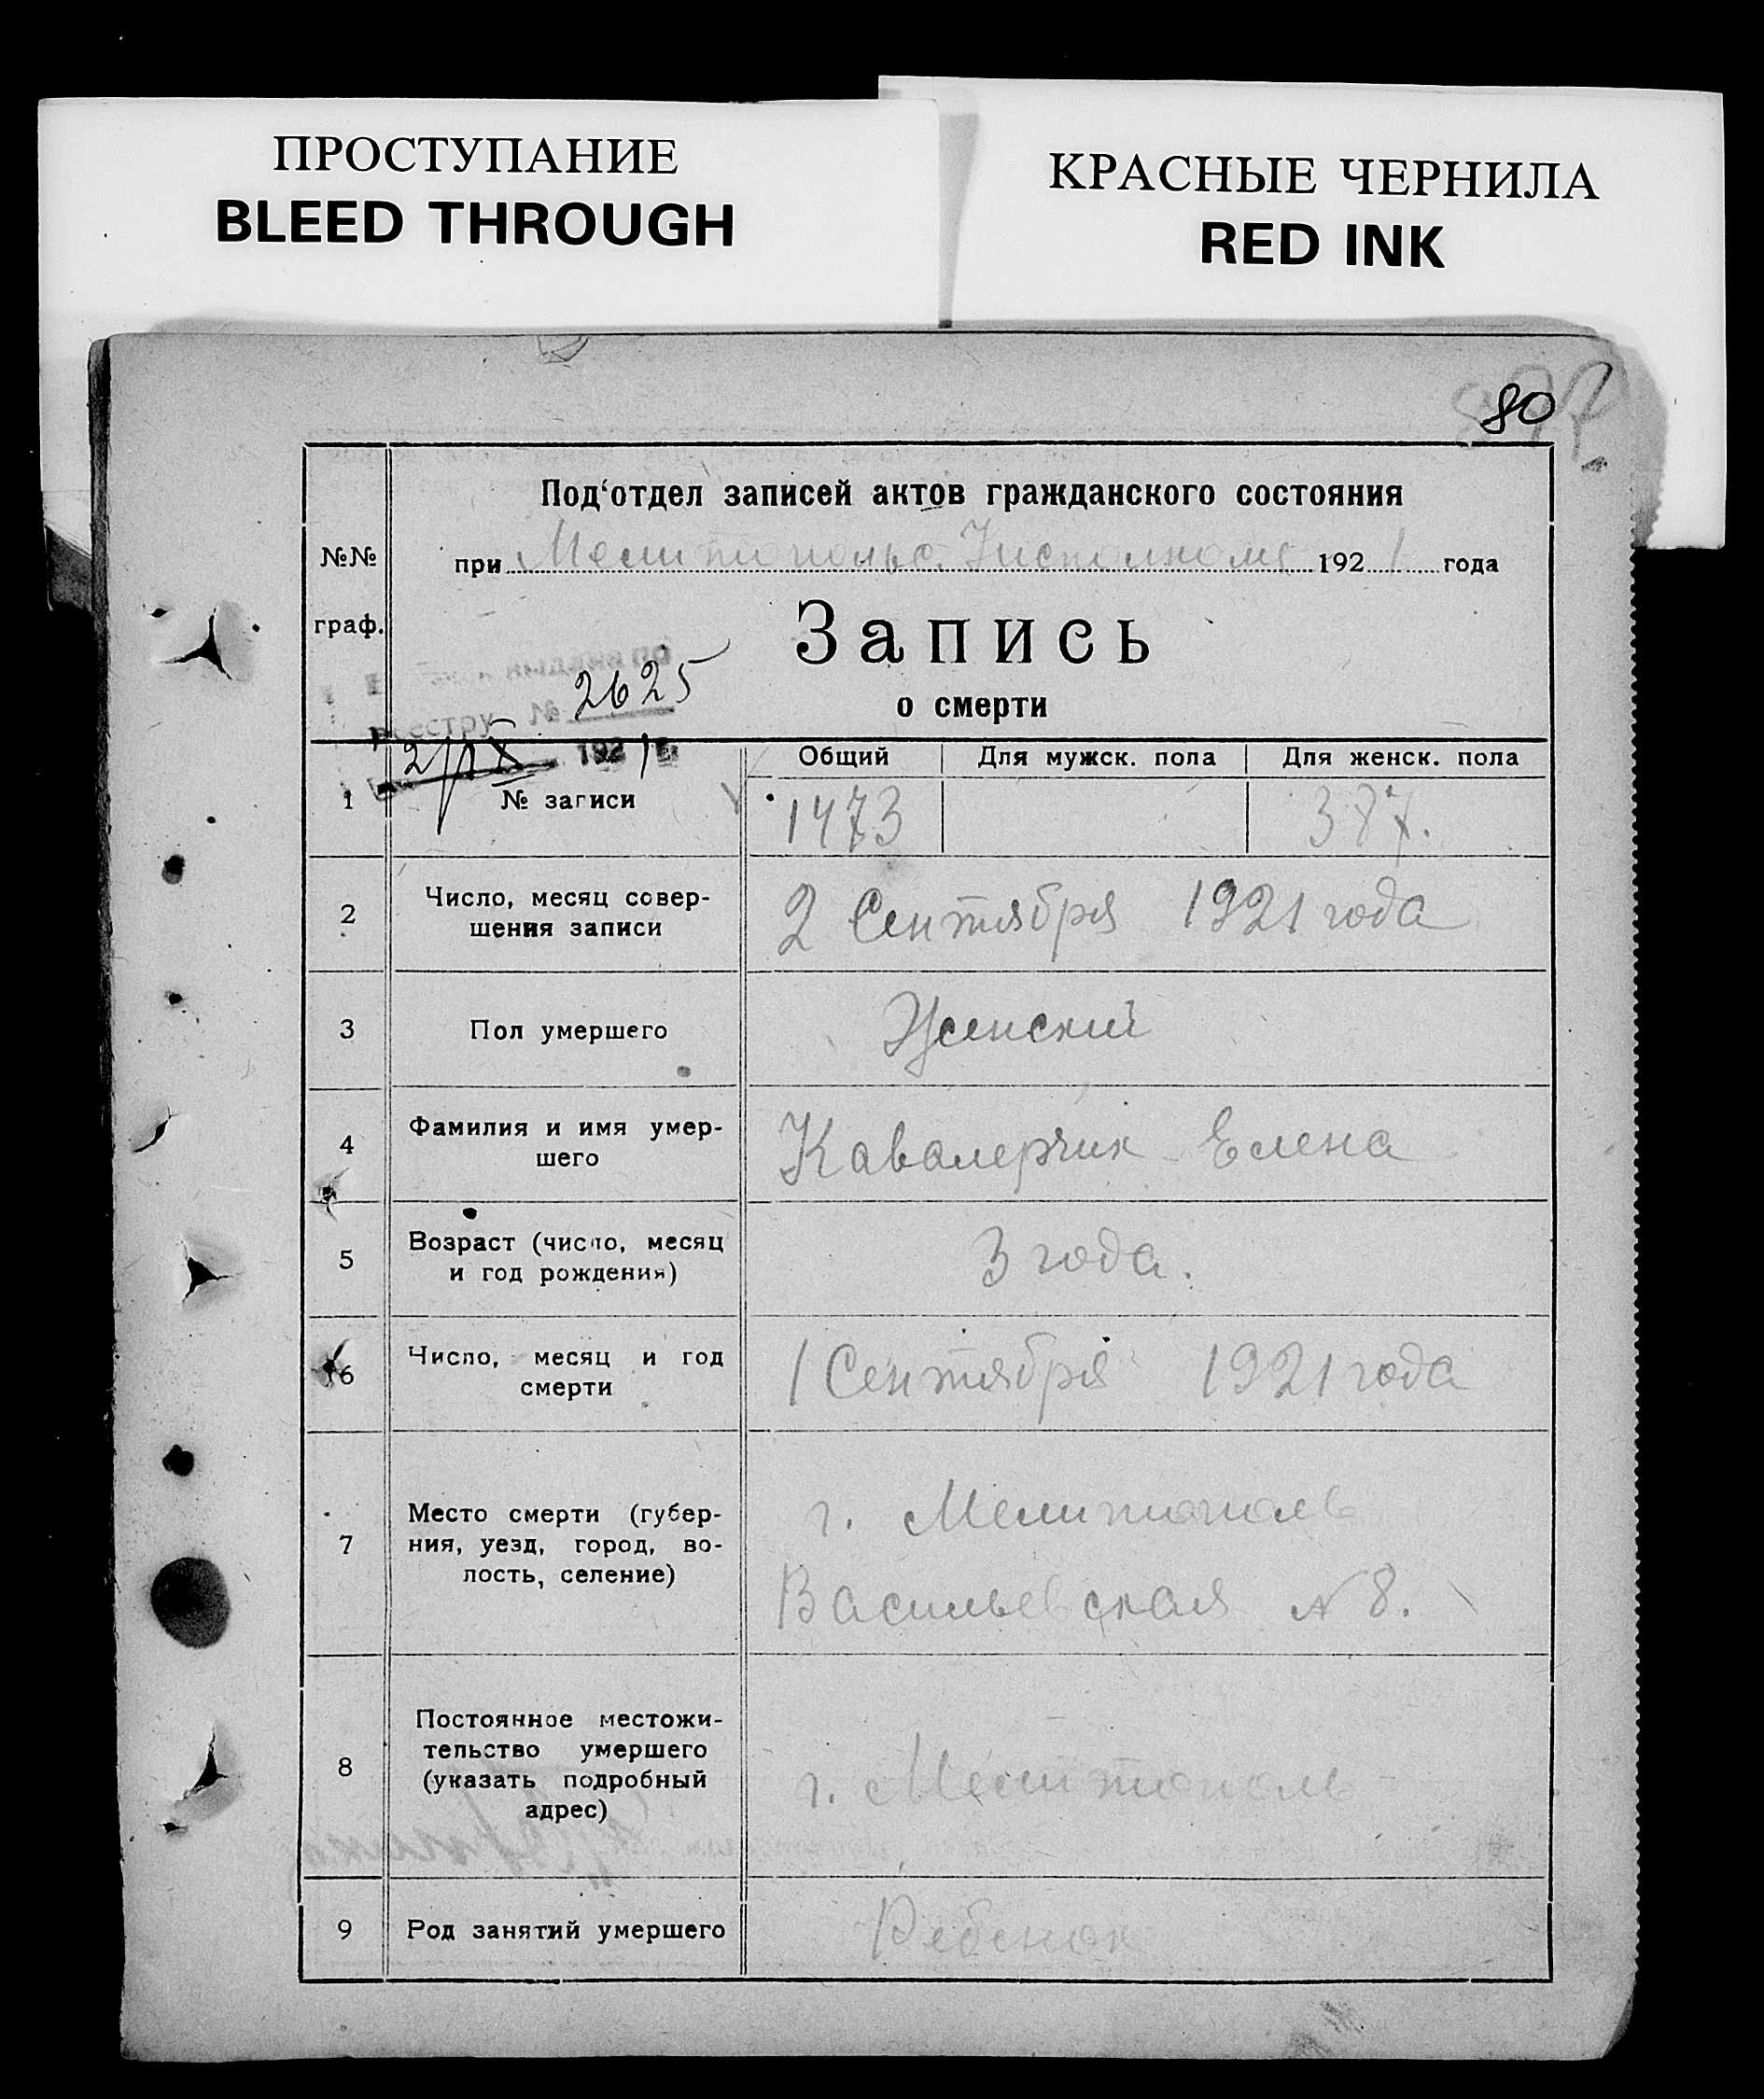 ПРОСТУПАНИЕ
BLEED THROUGH
КРАСНЫЕ ЧЕРНИЛА
RED INK
80
Под‘отдел записей актов гражданского состояния
№№
граф.
при Мелитопольс. 1921 года
Запись
о смерти
реестру № 2625
2/IX 1921 г.
Общий Для мужск. пола Для женск. пола
1 № записи 1473 387.
2 Число, месяц совер-
шения записи
2 Сентября 1921 года
3 Пол умершего Женский
4 Фамилия и имя умер-
шего
Кавалерчик Елена
5 Возраст (число, месяц
и год рождения)
3 года.
6 Число, месяц и год
смерти
1 Сентября 1921 года
7 Место смерти (губер-
ния, уезд, город, во-
лость, селение)
г. Мелитополь
Васильевская № 8.
8 Постоянное местожи-
тельство умершего
(указать подробный
адрес)
г. Мелитополь
9 Род занятий умершего Ребенок